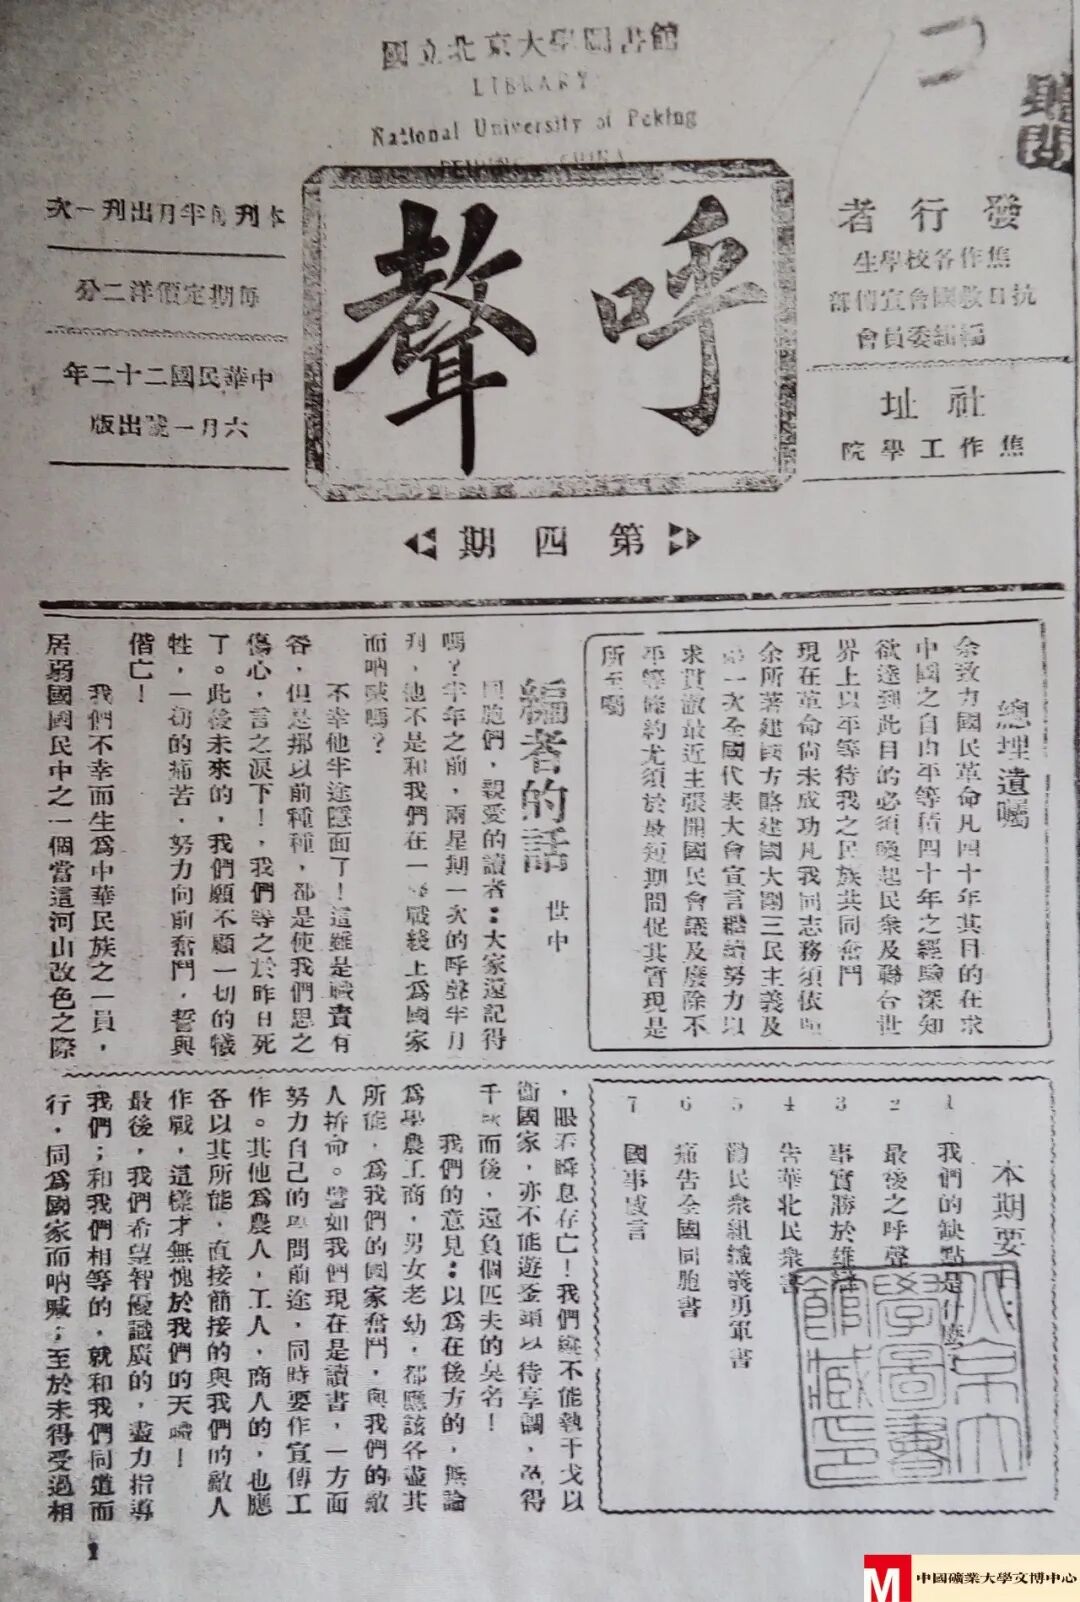 國立北京大學圖書館
LIBRARY
National University of Peking
PEIPING CHINA
呼聲
發行者
焦作各校學生
抗日救國會宣傳部
編輯委員會
社址
焦作工學院
本刊每半月出刊一次
每期定價洋二分
中華民國二十二年
六月一號出版
第四期
總理遺囑
余致力國民革命凡四十年其目的在求
中國之自由平等積四十年之經驗深知
欲達到此目的必須喚起民衆及聯合世
界上以平等待我之民族共同奮鬥
現在革命尚未成功凡我同志務須依照
余所著建國方略建國大綱三民主義及
第一次全國代表大會宣言繼續努力以
求貫澈最近主張開國民會議及廢除不
平等條約尤須於最短期間促其實現是
所至囑
編者的話
世中
同胞們,親愛的讀者:大家還記得
嗎?半年之前,兩星期一次的呼聲半月
刊,他不是和我們在一條戰綫上爲國家
而吶喊嗎?
不幸他半途隱面了!這雖是職責有
咎,但是挪以前種種,都是使我們思之
傷心,言之淚下!,我們等之於昨日死
了。此後未來的,我們願不顧一切的犧
牲,一切的痛苦,努力向前奮鬥,誓與
偕亡!
我們不幸而生爲中華民族之一員,
居弱國國民中之一個當這河山改色之際
本期要
1 我們的缺點是什麼
2 最後之呼聲
3 事實勝於雄辯
4 告華北民衆書
5 勸民衆組織義勇軍書
6 痛告全國同胞書
7 國事感言
北京大
學圖書
館藏印
,眼看瞬息存亡!我們縱不能執干戈以
衛國家,亦不能遊釜頭以待享調,免得
千秋而後,還負個匹夫的臭名!
我們的意見:以爲在後方的,無論
爲學農工商,男女老幼,都應該各盡其
所能,爲我們的國家奮鬥,與我們的敵
人拚命。譬如我們現在是讀書,一方面
努力自己的學問前途,同時要作宣傳工
作。其他爲農人,工人,商人的,也應
各以其所能,直接簡接的與我們的敵人
作戰,這樣才無愧於我們的天職!
最後,我們希望智優識廣的,盡力指導
我們;和我們相等的,就和我們同道而
行,同爲國家而吶喊;至於未得受過相
1
M 中國礦業大學文博中心